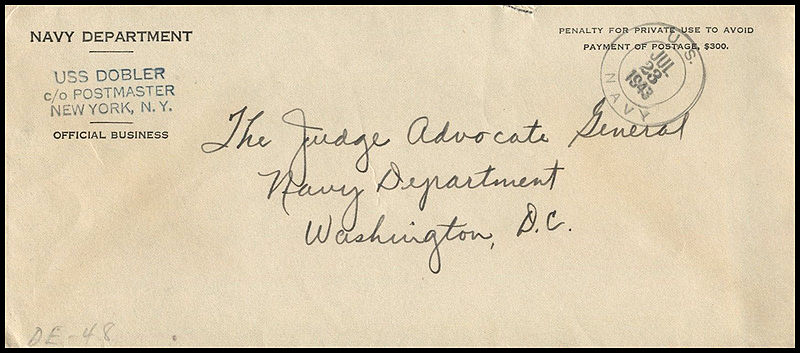 NAVY DEPARTMENT
USS DOBLER
c/o POSTMASTER
NEW YORK, N. Y.
OFFICIAL BUSINESS
PENALTY FOR PRIVATE USE TO AVOID
PAYMENT OF POSTAGE, $300.
U.S.
JUL
23
1943
NAVY
The Judge Advocate General
Navy Department
Washington, D.C.
DE-48